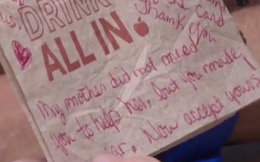 DRINK
Thank Card
ALL IN
My mother did not need for
you to help her, but you made
Now accept yours